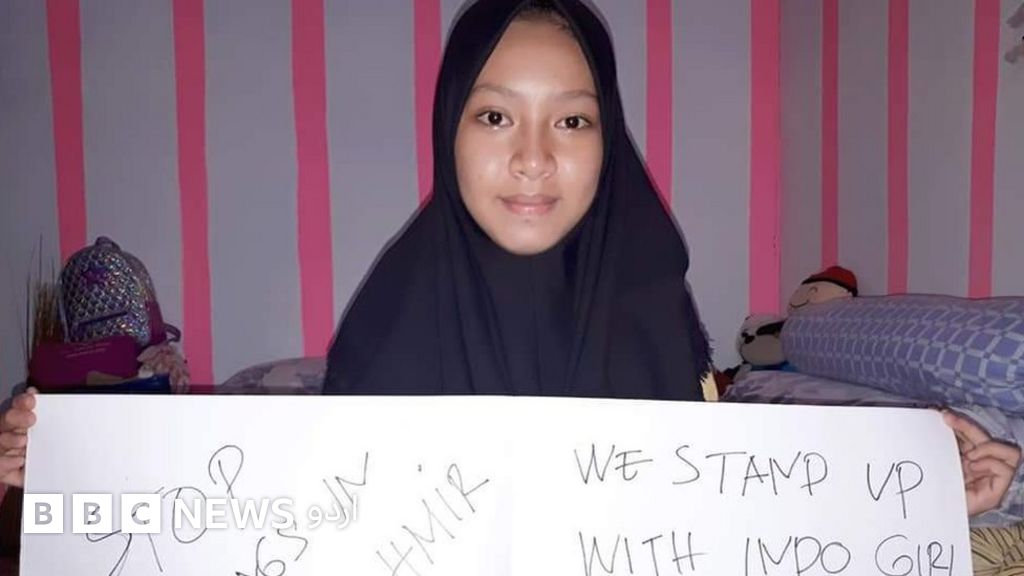 STOP
IN
HMIR
WE STAND UP
WITH INDO GIRL
BBC NEWS اردو